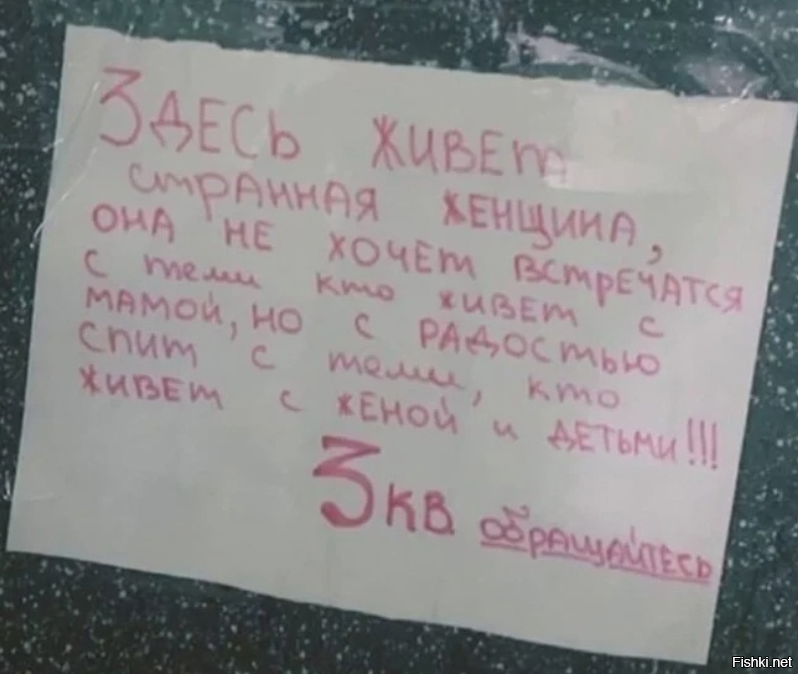 ЗДЕСЬ ЖИВЕТ
СТРАННАЯ ЖЕНЩИНА,
ОНА НЕ ХОЧЕТ ВСТРЕЧАТСЯ
С ТЕМИ КТО ЖИВЕТ С
МАМОЙ, НО С РАДОСТЬЮ
СПИТ С ТЕМИ, КТО
ЖИВЕТ С ЖЕНОЙ И ДЕТЬМИ!!!
3 КВ ОБРАЩАЙТЕСЬ
Fishki.net